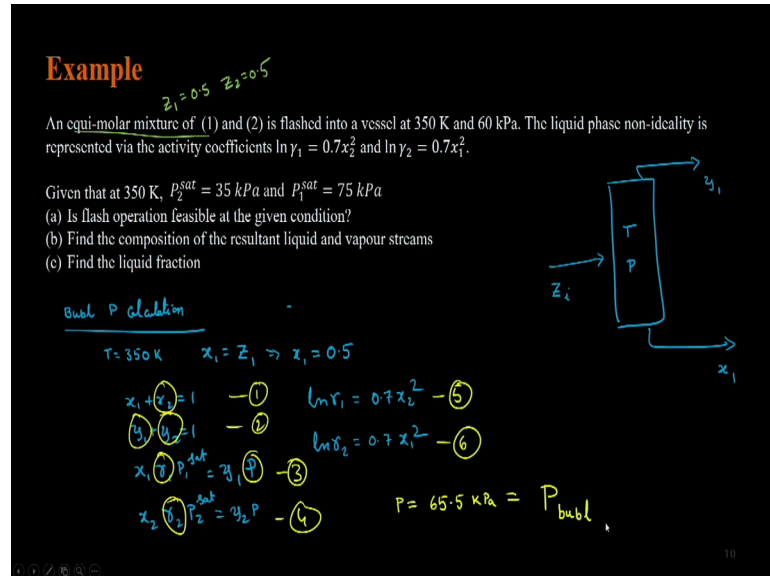 Example
z₁=0.5 z₂=0.5
An equi-molar mixture of (1) and (2) is flashed into a vessel at 350 K and 60 kPa. The liquid phase non-ideality is
represented via the activity coefficients ln γ₁ = 0.7x₂² and ln γ₂ = 0.7x₁².
Given that at 350 K, P₂ˢᵃᵗ = 35 kPa and P₁ˢᵃᵗ = 75 kPa
(a) Is flash operation feasible at the given condition?
(b) Find the composition of the resultant liquid and vapour streams
(c) Find the liquid fraction
y₁
T
P
Zᵢ
x₁
Bubl P Calculation
T=350K x₁=Z₁ ⇒ x₁=0.5
x₁+x₂=1 —① lnγ₁ = 0.7x₂² —⑤
y₁+y₂=1 —② lnγ₂ = 0.7x₁² —⑥
x₁γ₁P₁ˢᵃᵗ = y₁P —③
x₂γ₂P₂ˢᵃᵗ = y₂P —④
P= 65.5 KPa = P_bubl
10